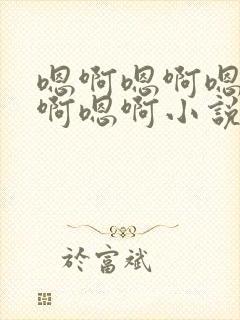 嗯啊嗯啊嗯
啊嗯啊小說
於富斌